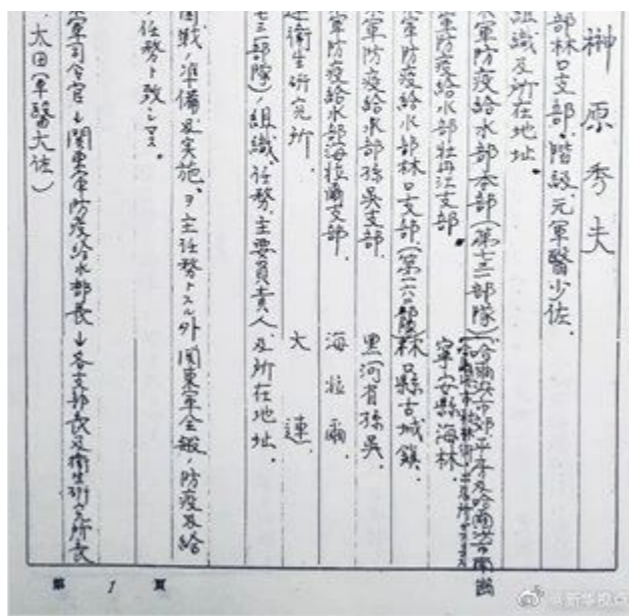 榊原秀夫
部林口支部。階級、元軍醫少佐。
組織及所在地址。
軍防疫給水部本部(第七三一部隊)
軍防疫給水部牡丹江支部。 寧安縣海林。
軍防疫給水部林口支部。(第一六二部隊)林口縣古城鎮。
軍防疫給水部孫吳支部。 黑河省孫吳。
軍防疫給水部海拉爾支部。 海拉爾。
連衛生研究所。 大連。
七三一部隊)ノ組織、任務、主要負責人、及所在地址。
戰ノ準備及実施。ヲ主任務トスル外関東軍全般ノ防疫及給
任務ト致シマス。
軍司令官↓関東軍防疫給水部長↓各支部長及衛生研究所長
太田軍醫大佐)
第 1 頁
@新华视点